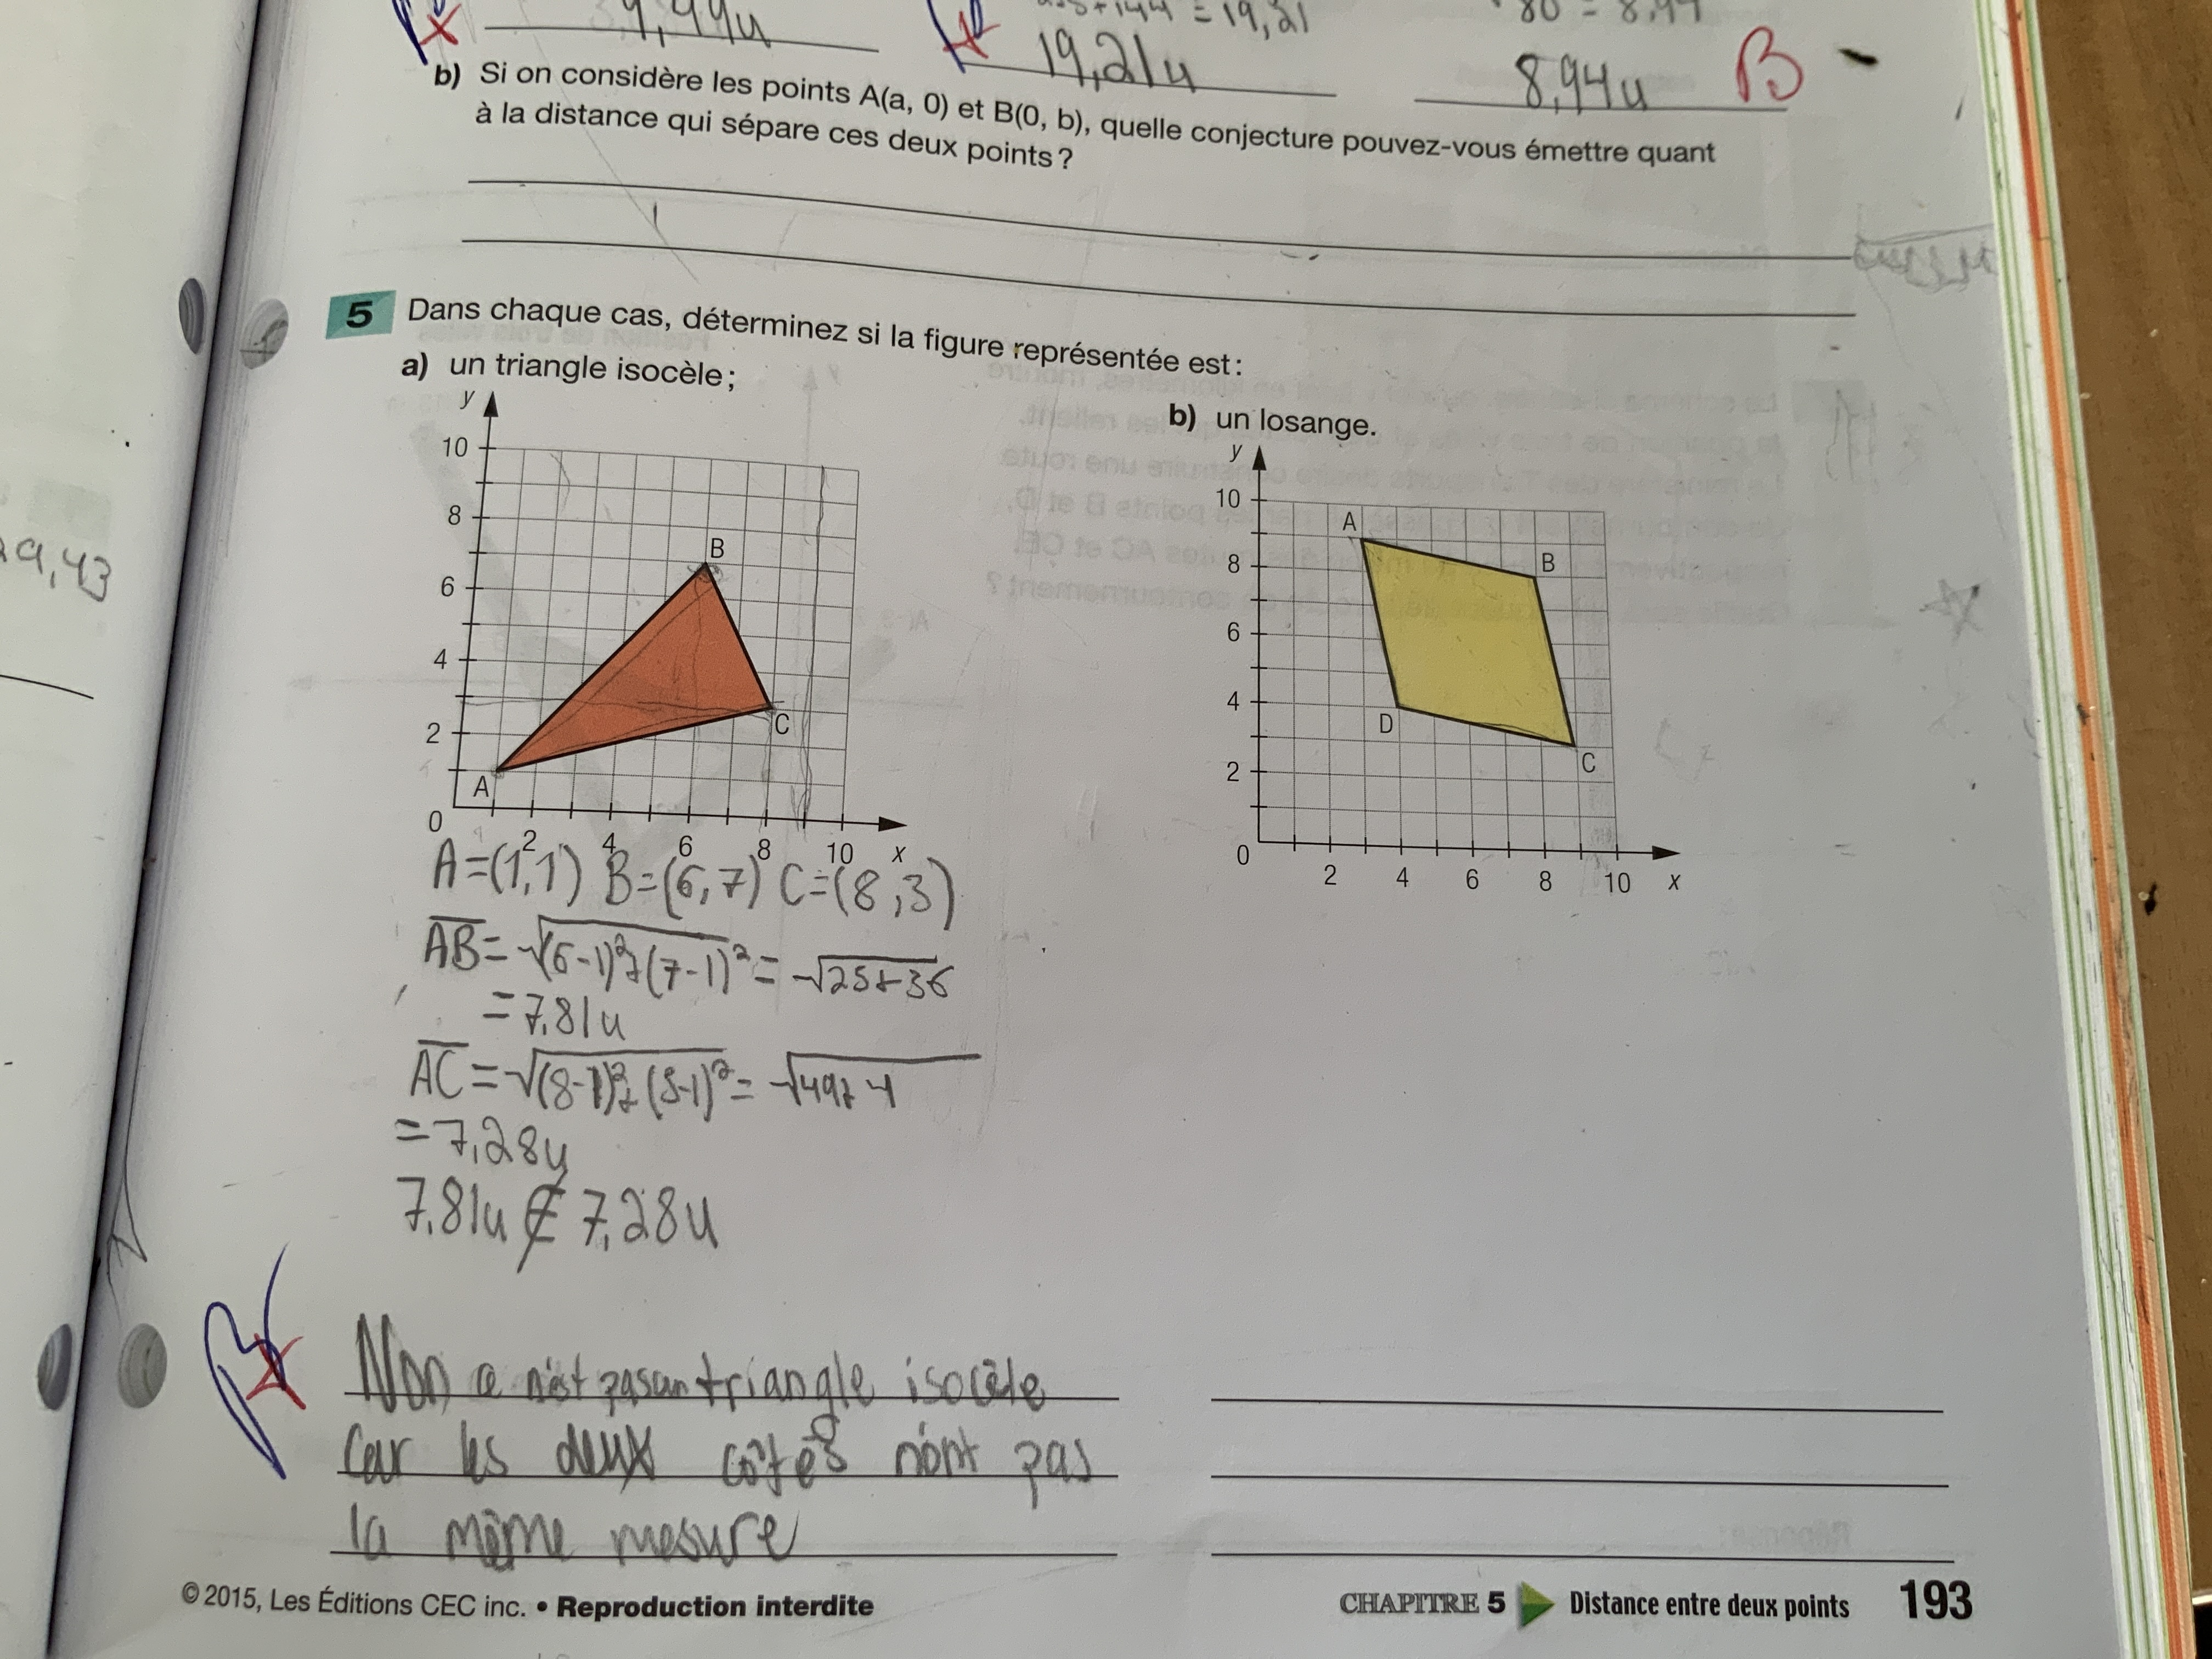 9,99u
= 19,21
80 = 8,94
19,21u
8,94u
b) Si on considère les points A(a, 0) et B(0, b), quelle conjecture pouvez-vous émettre quant
à la distance qui sépare ces deux points ?
29,43
5 Dans chaque cas, déterminez si la figure représentée est :
a) un triangle isocèle ;
y
10
8
6
4
2
0
2 4 6 8 10 x
A
B
C
b) un losange.
y
10
8
6
4
2
0
2 4 6 8 10 x
A
B
C
D
A=(1,1) B=(6,7) C=(8,3)
AB= √(6-1)²+(7-1)² = √25+36
= 7,81u
AC = √(8-1)²+(3-1)² = √49+4
= 7,28u
7,81u ≠ 7,28u
Non ce n'est pas un triangle isocèle
car les deux côtés n'ont pas
la même mesure
© 2015, Les Éditions CEC inc. • Reproduction interdite
CHAPITRE 5 Distance entre deux points 193